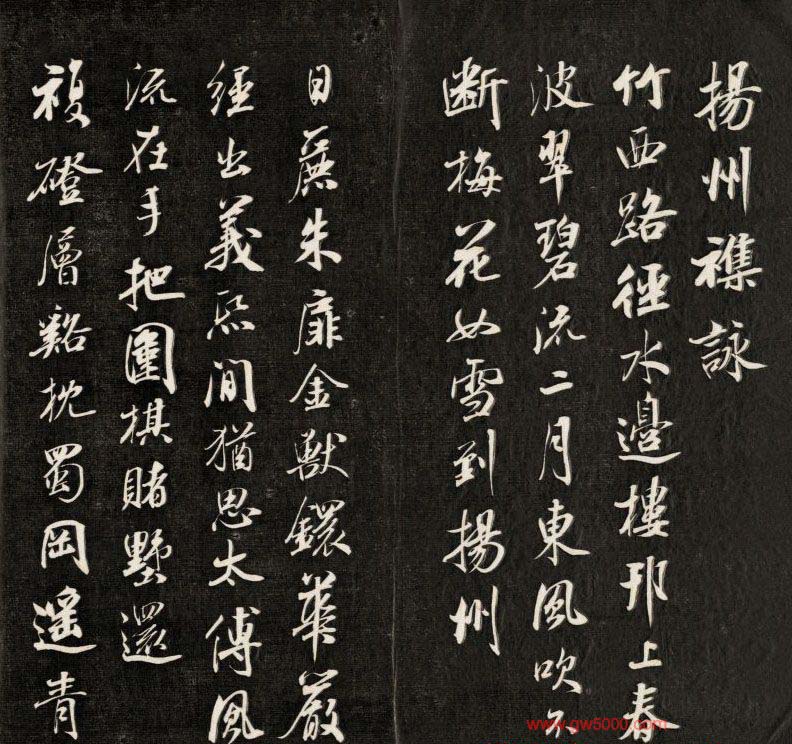 揚州襍詠
竹西路徑水邊樓邗上春
波翠碧流二月東風吹不
断梅花如雪到揚州
日朱扉金獸鐶華嚴
經出義熙間猶思太傅風
流在手把圍棋賭墅還
複磴層谿枕蜀岡遥青
www.gw5000.com